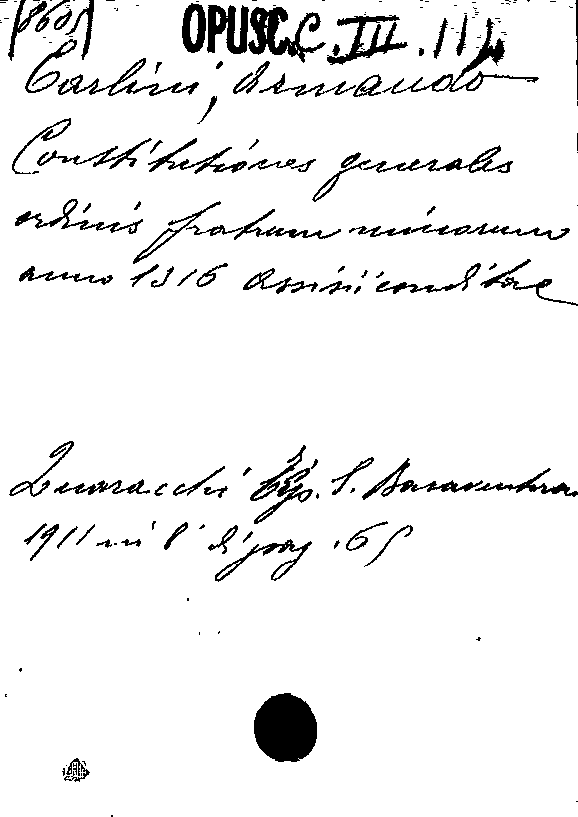 8605
OPUSC. C. III. 114
Carlini, Armando
Constitutiones generales
ordinis fratrum minorum
anno 1316 Assisii conditae
Quaracchi Tip. S. Bonaventura
1911 in 8° di pag. 65